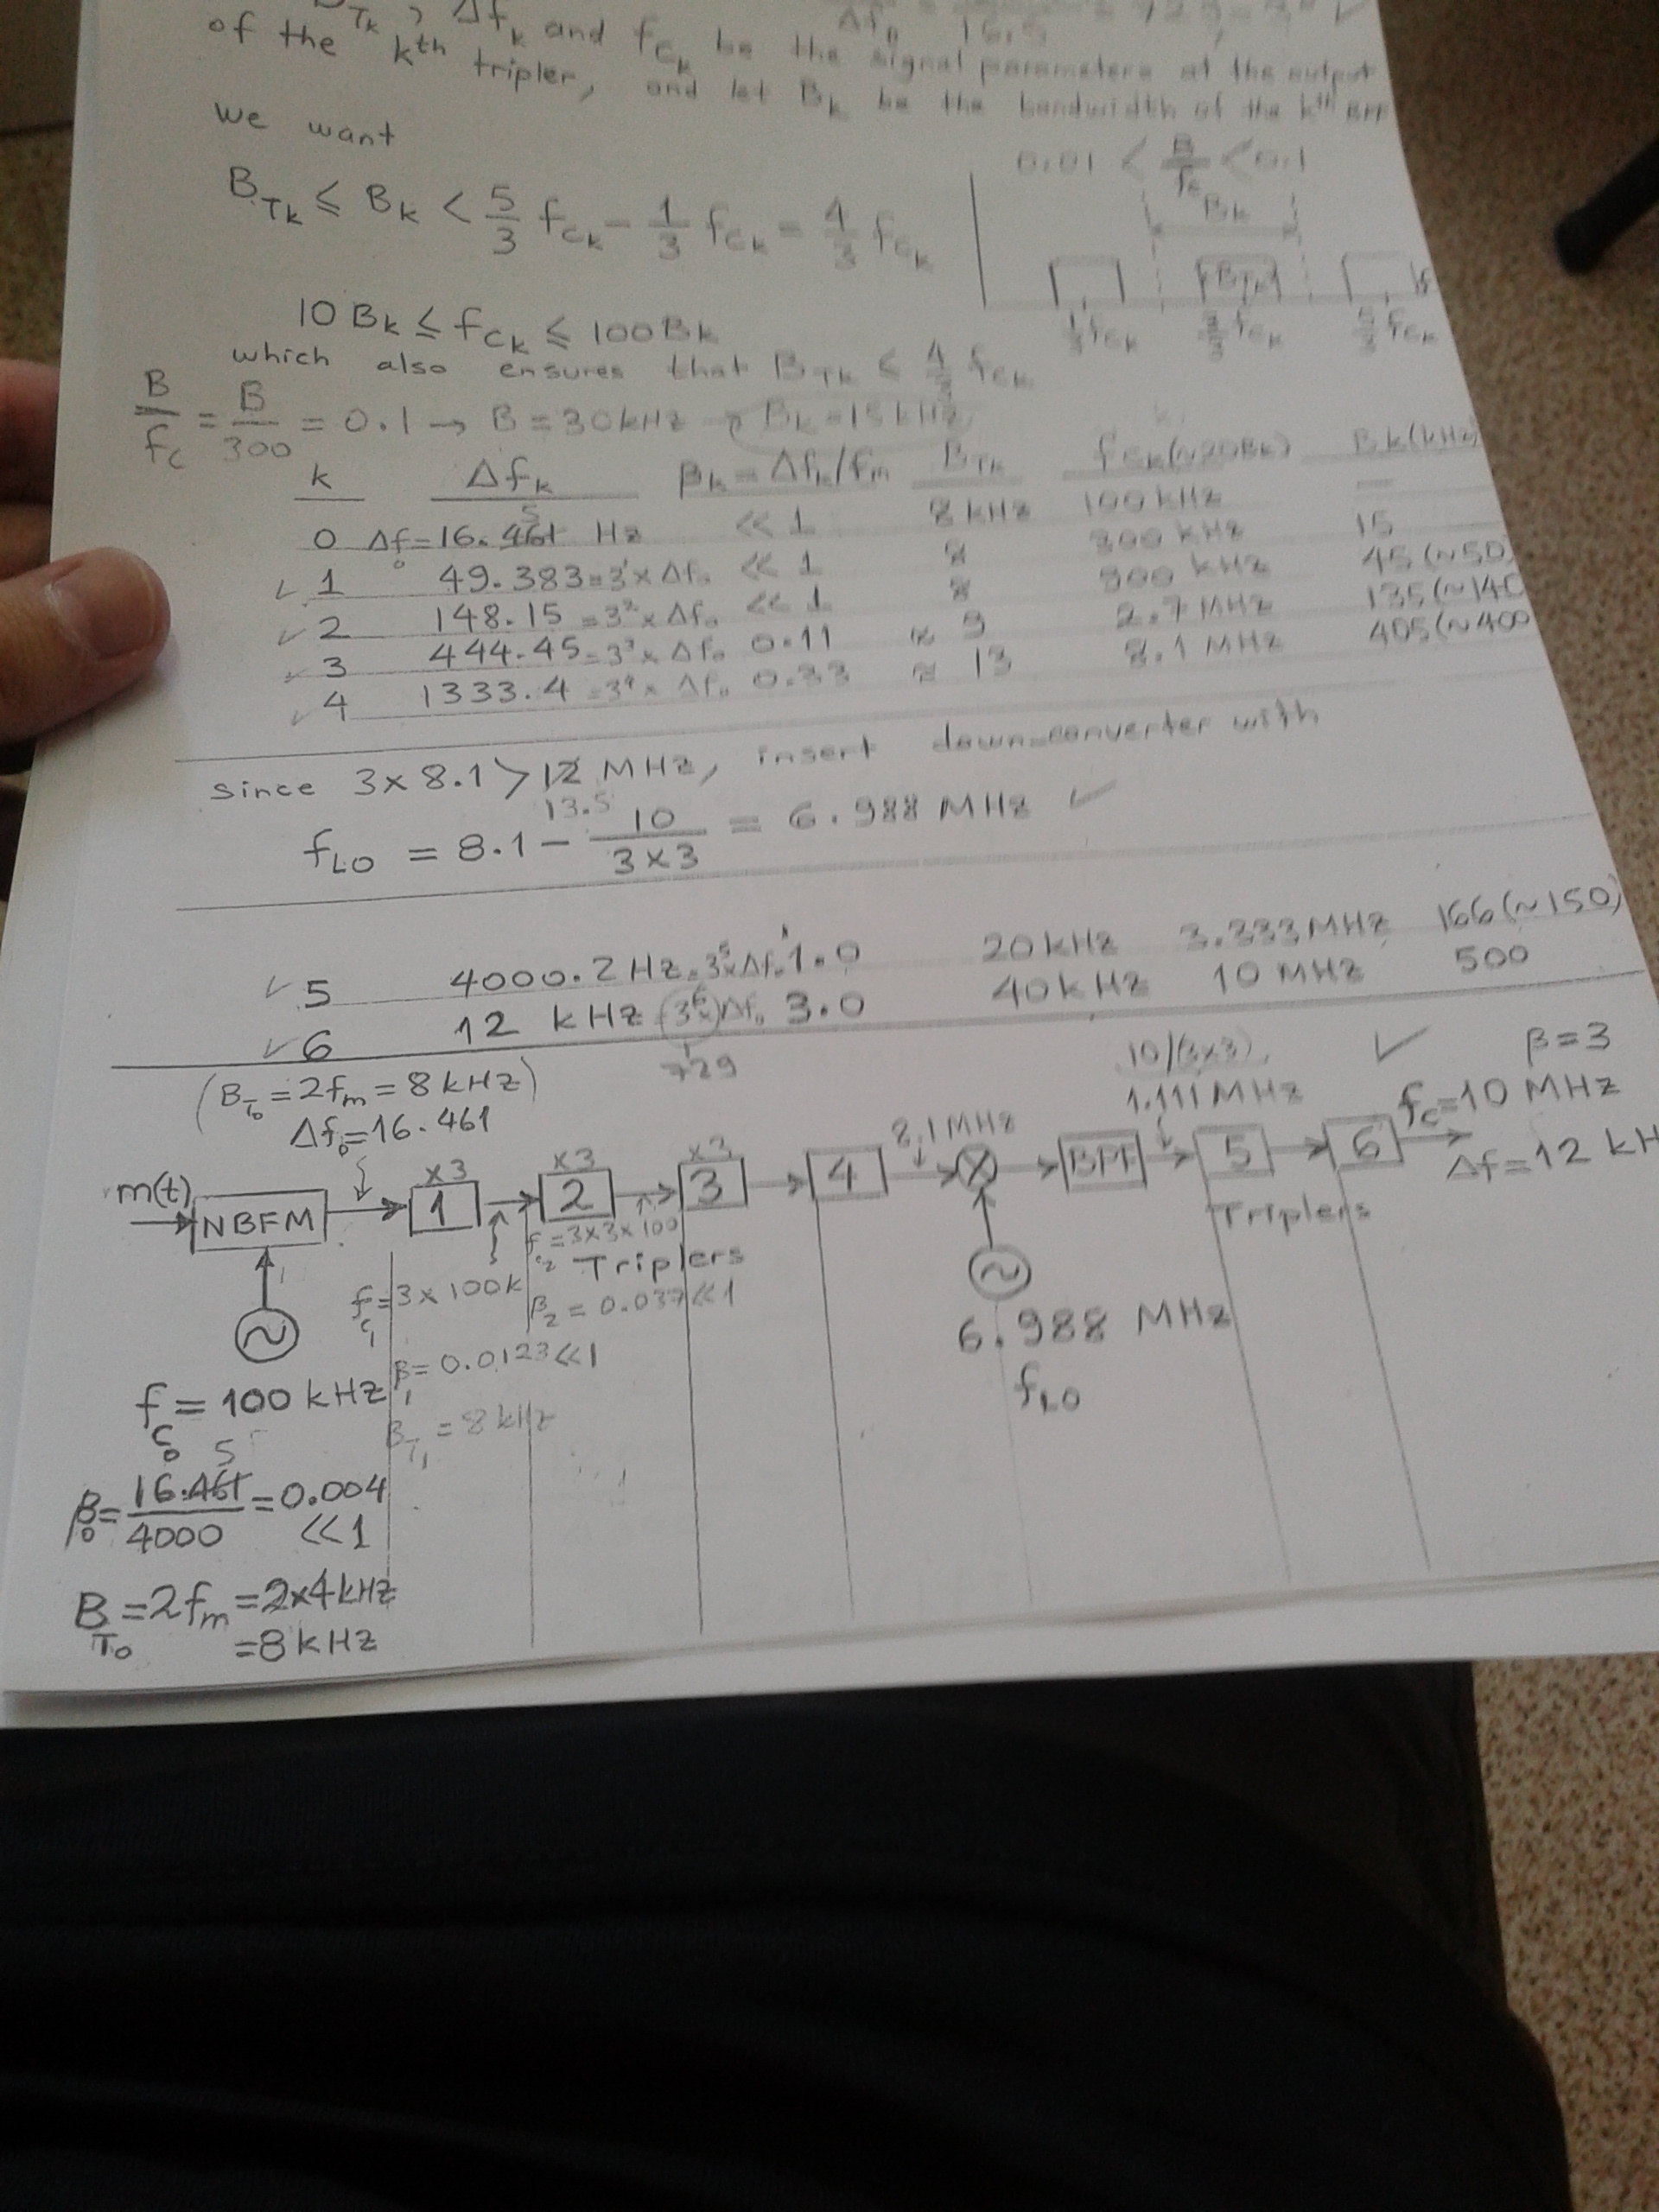 Tk, Δfk and fck be the signal parameters at the output
of the kth tripler, and let Bk be the bandwidth of the kth BPF
we want
0.01 < B/fc < 0.1
BTk ≤ Bk < 5/3 fck - 1/3 fck = 4/3 fck
Bk
BTk
1/3 fck 3/3 fck 5/3 fck
10 Bk ≤ fck ≤ 100 Bk
which also ensures that BTk ≤ 4/3 fck
B/fc = B/300 = 0.1 → B = 30 kHz → Bk = 15 kHz
k Δfk βk = Δfk/fm BTk fck(~20Bk) Bk(kHz)
0 Δf0=16.461 5 Hz << 1 8 kHz 100 kHz —
✓ 1 49.383=3¹×Δf0 << 1 8 300 kHz 15
✓ 2 148.15=3²×Δf0 << 1 8 900 kHz 45(~50)
✓ 3 444.45=3³×Δf0 0.11 ≈ 9 2.7 MHz 135(~140
✓ 4 1333.4=3⁴×Δf0 0.33 ≈ 13 8.1 MHz 405(~400
since 3×8.1 > 12 MHz, insert down-converter with
13.5
fLO = 8.1 - 10/(3×3) = 6.988 MHz ✓
✓ 5 4000.2 Hz=3⁵×Δf0 1.0 20 kHz 3.333 MHz 166(~150)
✓ 6 12 kHz=(3⁶×)Δf0 3.0 40 kHz 10 MHz 500
729
(BT0=2fm=8 kHz)
Δf0=16.461
10/(3×3)
1.111 MHz
✓ β=3
fc=10 MHz
Δf=12 kH
8.1 MHz
×3 ×3 ×3
m(t) NBFM 1 2 3 4 BPF 5 6
fc2=3×3×100
Triplers
Triplers
fc1=3×100k
β2=0.037<<1
β1=0.0123<<1
BT1=8 kHz
6.988 MHz
fLO
fc0=100 kHz
β0=16.461/4000=0.004
5
<<1
BT0=2fm=2×4kHz
=8 kHz